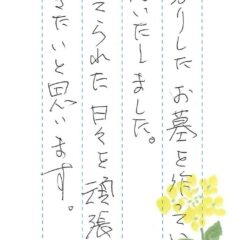 かりした お墓を作ってい
いたしました。
られた日々を頑張
きたいと思います。